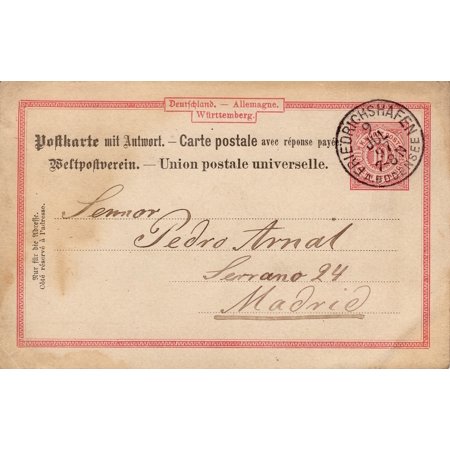 Deutschland. — Allemagne.
Württemberg.
Postkarte mit Antwort. — Carte postale avec réponse payée
Weltpostverein. — Union postale universelle.
FRIEDRICHSHAFEN
9
JUL
91
7-8 N
A. BODENSEE
Nur für die Adresse.
Côté réservé à l'adresse.
Sennor
Pedro Arnál
Serrano 24
Madrid